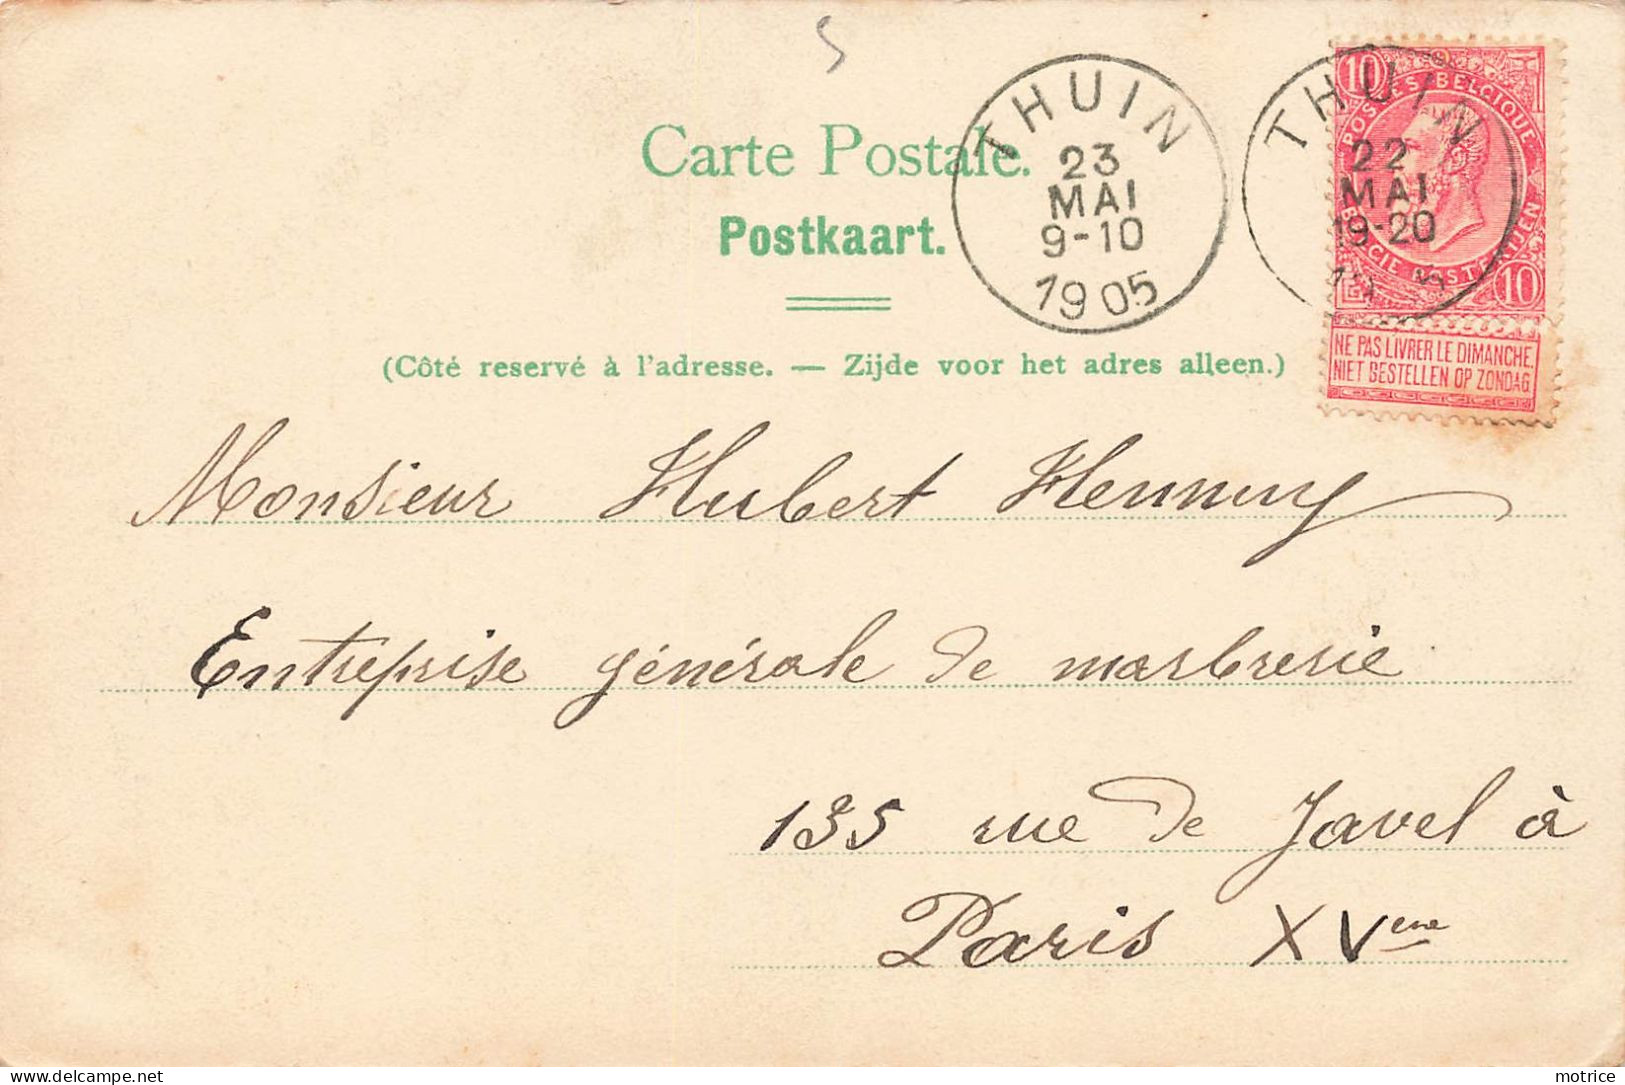 S
Carte Postale.
Postkaart.
(Côté reservé à l'adresse. — Zijde voor het adres alleen.)
THUIN
23
MAI
9-10
1905
THUIN
22
MAI
19-20
10
POSTES BELGIQUE
BELGIE POSTERIJEN
10
NE PAS LIVRER LE DIMANCHE.
NIET BESTELLEN OP ZONDAG
Monsieur Hubert
Entreprise générale de marbrerie
135 rue de Javel à
Paris XVeme
motrice